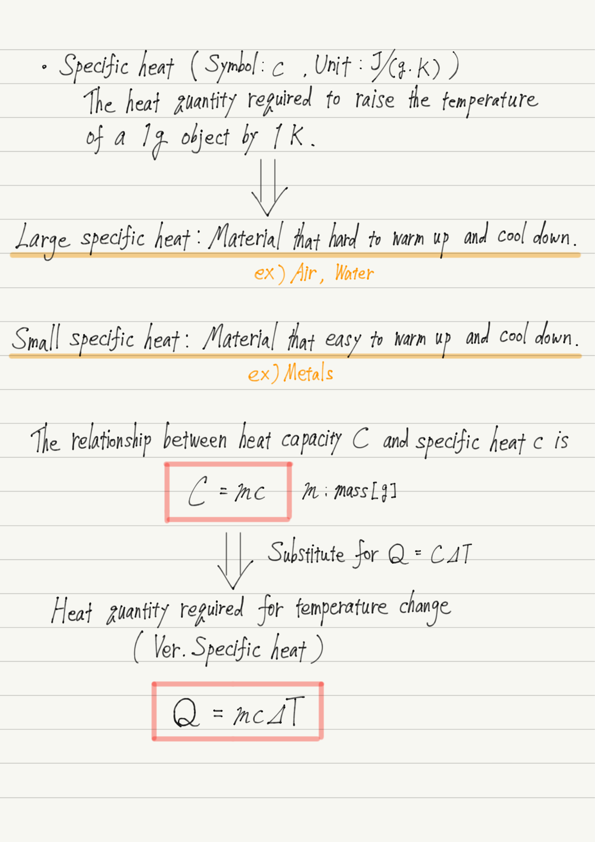 • Specific heat ( Symbol : c , Unit : J/(g·K) )
The heat quantity required to raise the temperature
of a 1g object by 1 K.
Large specific heat : Material that hard to warm up and cool down.
ex) Air, Water
Small specific heat : Material that easy to warm up and cool down.
ex) Metals
The relationship between heat capacity C and specific heat c is
C = mc m : mass [g]
Substitute for Q = CΔT
Heat quantity required for temperature change
( Ver. Specific heat )
Q = mcΔT